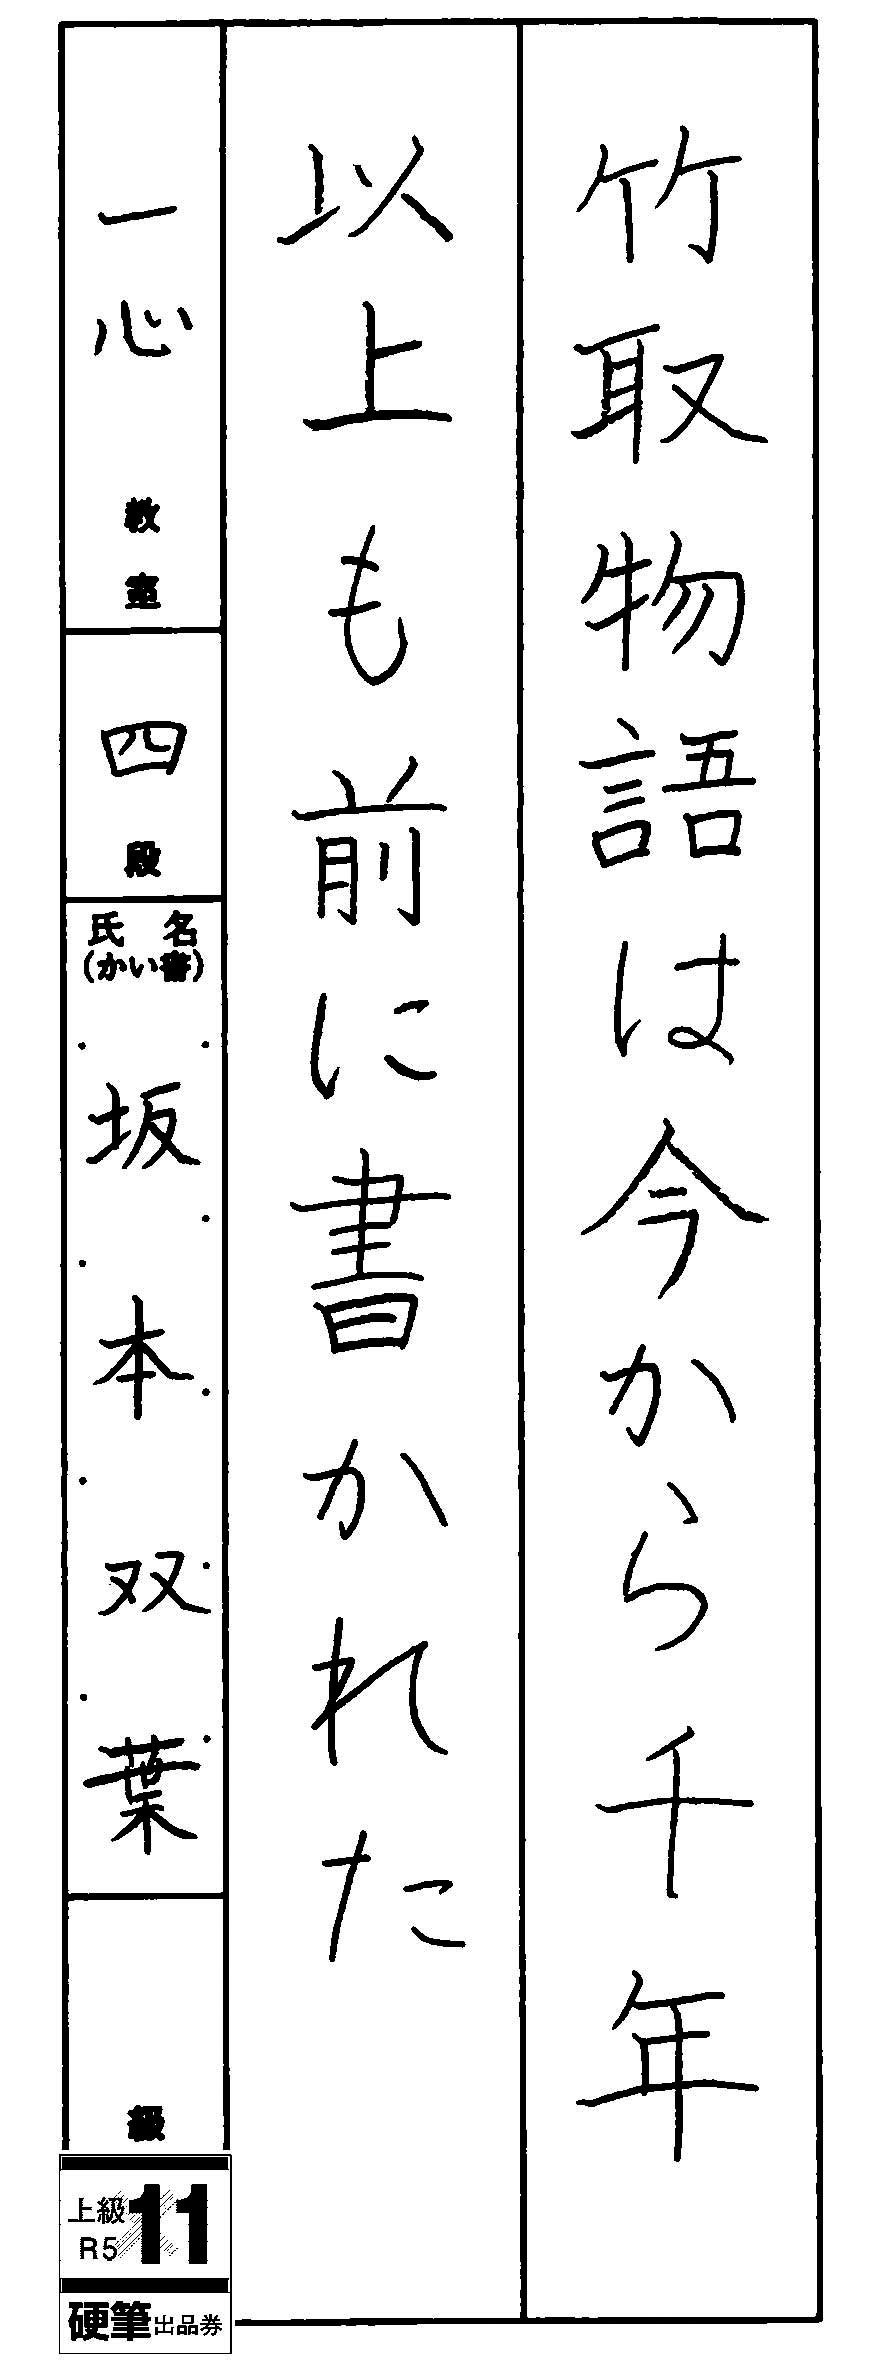 竹取物語は今から千年
以上も前に書かれた
一心教室
四段
氏名
(かい書)
坂本双葉
級
上級
R5
11
硬筆出品券